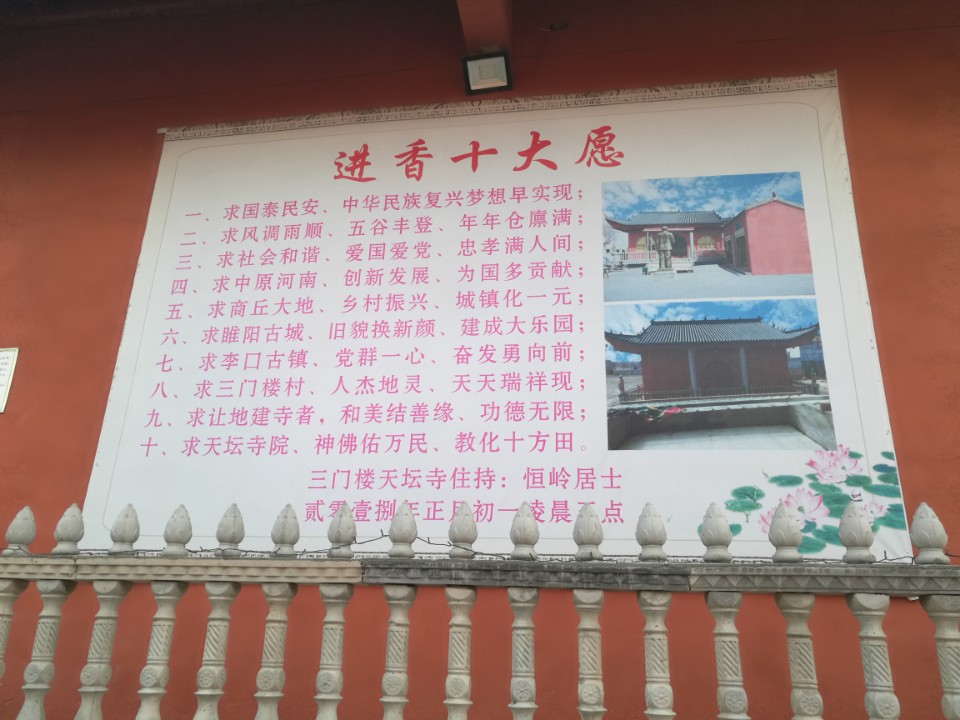 进香十大愿
一、求国泰民安、中华民族复兴梦想早实现；
二、求风调雨顺、五谷丰登、年年仓廪满；
三、求社会和谐、爱国爱党、忠孝满人间；
四、求中原河南、创新发展、为国多贡献；
五、求商丘大地、乡村振兴、城镇化一元；
六、求睢阳古城、旧貌换新颜、建成大乐园；
七、求李口古镇、党群一心、奋发勇向前；
八、求三门楼村、人杰地灵、天天瑞祥现；
九、求让地建寺者，和美结善缘、功德无限；
十、求天坛寺院、神佛佑万民、教化十方田。
三门楼天坛寺住持：恒岭居士
贰零壹捌年正月初一凌晨 点